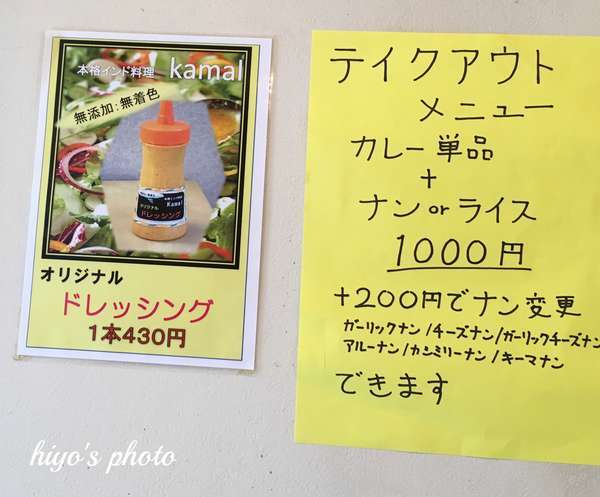 本格インド料理 kamal
無添加・無着色
本格インド料理
Kamal
オリジナル
ドレッシング
オリジナル
ドレッシング
1本430円
テイクアウト
メニュー
カレー単品
+
ナン or ライス
1000円
+200円でナン変更
ガーリックナン/チーズナン/ガーリックチーズナン
アルーナン/カシミリーナン/キーマナン
できます
hiyo's photo